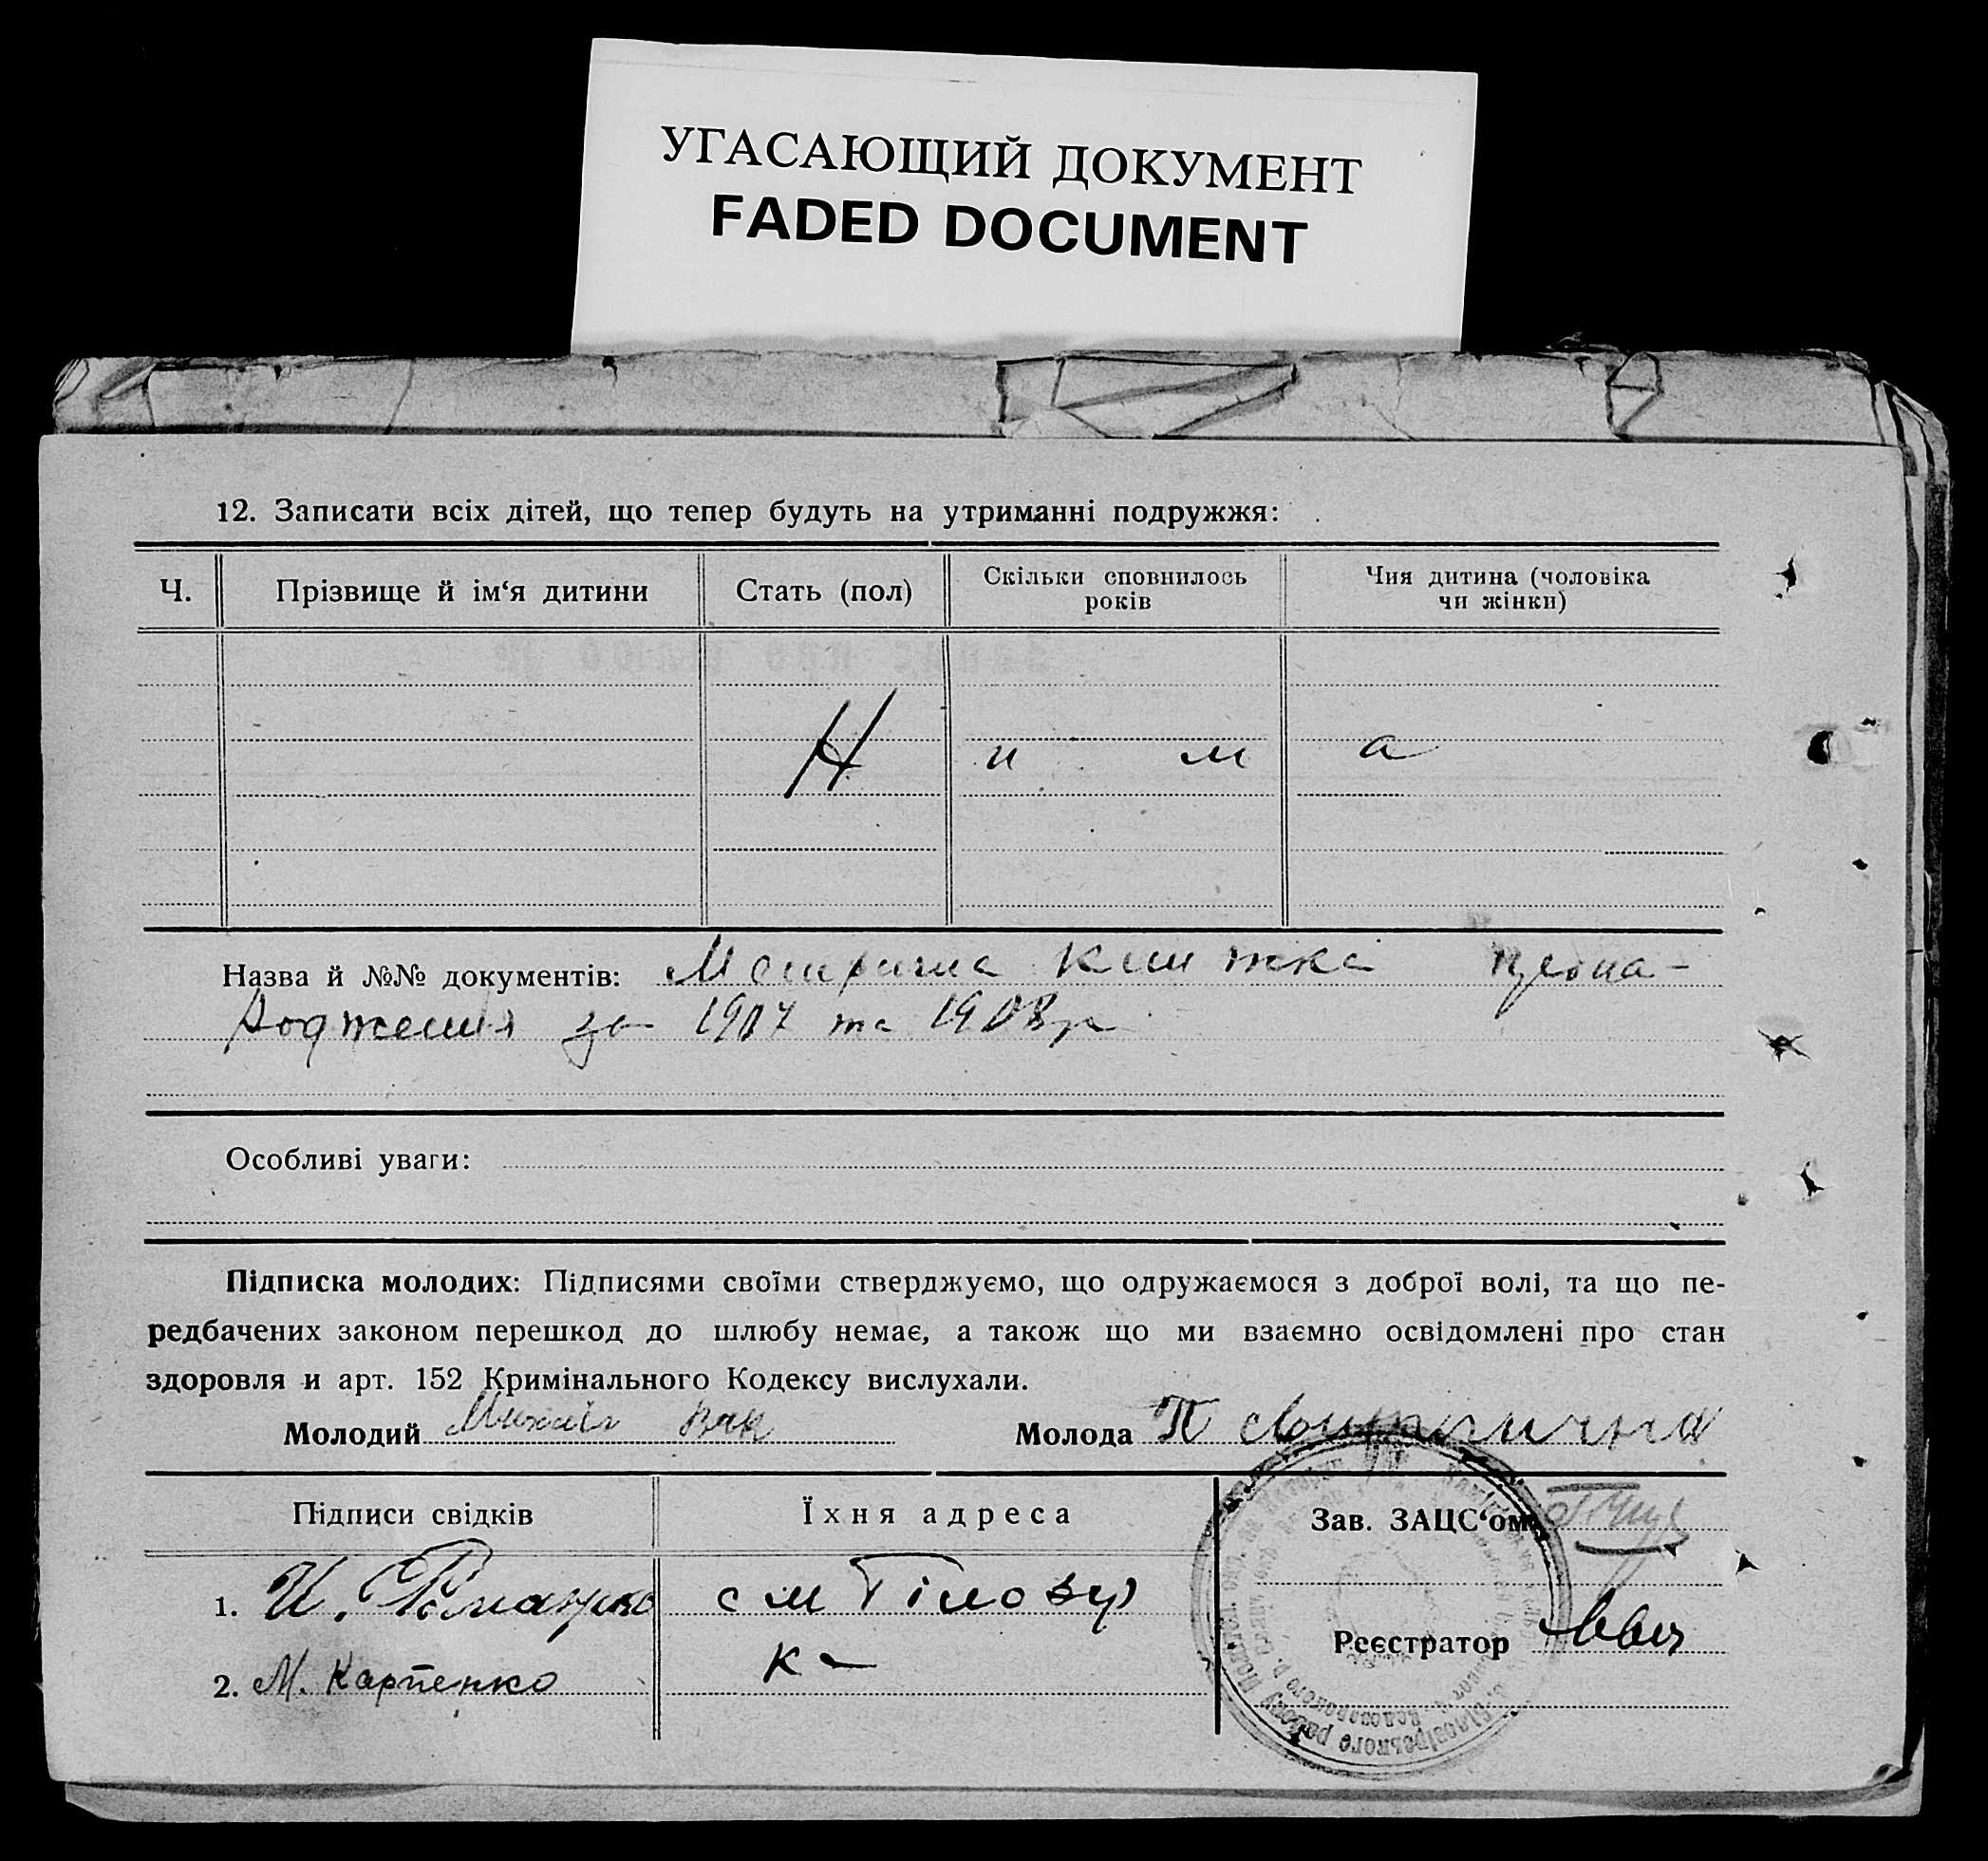 УГАСАЮЩИЙ ДОКУМЕНТ
FADED DOCUMENT
12. Записати всіх дітей, що тепер будуть на утриманні подружжя:
Ч.
Прізвище й ім‘я дитини
Стать (пол)
Скільки сповнилось
років
Чия дитина (чоловіка
чи жінки)
Н и м а
Назва й №№ документів: Метрична книжка про на-
родження за 1907 та 1908 р
Особливі уваги:
Підписка молодих: Підписями своїми стверджуємо, що одружаємося з доброї волі, та що пе-
редбачених законом перешкод до шлюбу немає, а також що ми взаємно освідомлені про стан
здоровля и арт. 152 Кримінального Кодексу вислухали.
Молодий
Молода П
Підписи свідків
Їхня адреса
Зав. ЗАЦС‘ом
1. И. с м Білозір
Реєстратор
2. М. Карпенко ка
Білозірського району